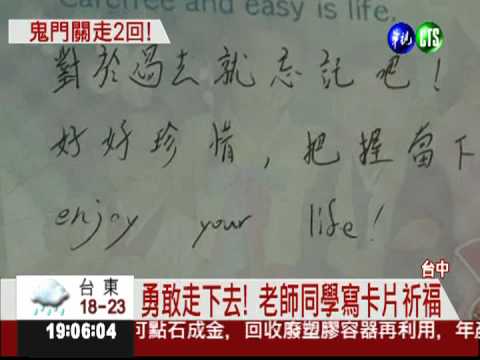 鬼門關走2回!
華視 CTS
Carefree and easy is life.
對於過去就忘記吧!
好好珍惜,把握當下
enjoy your life!
台中
台東
18-23
勇敢走下去! 老師同學寫卡片祈福
19:06:04
可點石成金,回收廢塑膠容器再利用,年